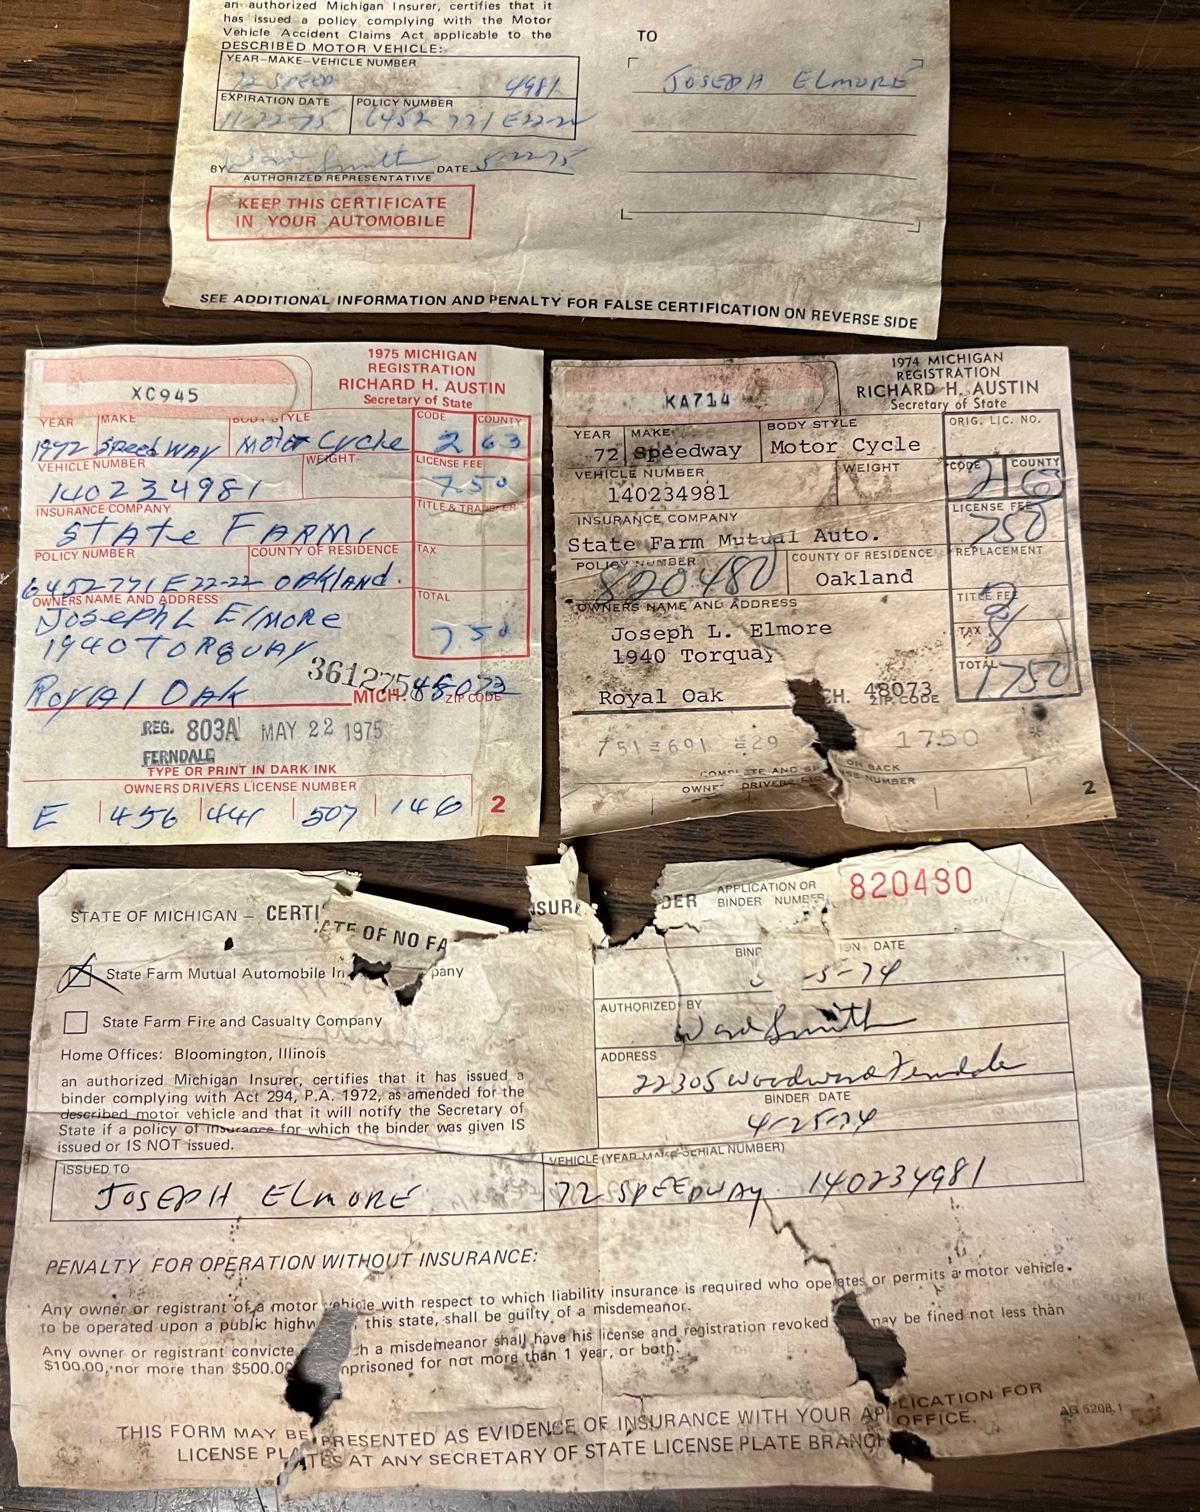 an authorized Michigan Insurer, certifies that it
has issued a policy complying with the Motor
Vehicle Accident Claims Act applicable to the
DESCRIBED MOTOR VEHICLE:
YEAR-MAKE-VEHICLE NUMBER
72 SPEED 4981
EXPIRATION DATE POLICY NUMBER
11-22-75 6452 721 E22-22
BY Ward Smith DATE 5-22-75
AUTHORIZED REPRESENTATIVE
KEEP THIS CERTIFICATE
IN YOUR AUTOMOBILE
TO
JOSEPH ELMORE
SEE ADDITIONAL INFORMATION AND PENALTY FOR FALSE CERTIFICATION ON REVERSE SIDE
XC945
1975 MICHIGAN
REGISTRATION
RICHARD H. AUSTIN
Secretary of State
YEAR MAKE BODY STYLE CODE COUNTY
1972 SpeedWAY Motor Cycle 2 63
VEHICLE NUMBER WEIGHT LICENSE FEE
140234981 7.50
INSURANCE COMPANY TITLE & TRANSFER
STATe FARM
POLICY NUMBER COUNTY OF RESIDENCE TAX
6452-721 E22-22 OAKLAND.
OWNERS NAME AND ADDRESS TOTAL
Joseph L Elmore
1940 TORQUAY 7 50
3612756
Royal Oak MICH. 48073
ZIP CODE
REG. 803A MAY 22 1975
FERNDALE
TYPE OR PRINT IN DARK INK
OWNERS DRIVERS LICENSE NUMBER
E 456 441 507 146 2
KA714
1974 MICHIGAN
REGISTRATION
RICHARD H. AUSTIN
Secretary of State
YEAR MAKE BODY STYLE ORIG. LIC. NO.
72 Speedway Motor Cycle
VEHICLE NUMBER WEIGHT CODE COUNTY
140234981 2 63
INSURANCE COMPANY LICENSE FEE
State Farm Mutual Auto. 750
POLICY NUMBER COUNTY OF RESIDENCE REPLACEMENT
820480 Oakland
OWNERS NAME AND ADDRESS TITLE FEE
Joseph L. Elmore
1940 Torquay TAX 8
Royal Oak CH. 48073 TOTAL 1750
ZIP CODE
1750
COMPLETE AND ON BACK
OWNE DRIVERS NUMBER
2
STATE OF MICHIGAN – CERTI ATE OF NO FA NSUR DER APPLICATION OR
BINDER NUMBER 820480
State Farm Mutual Automobile In pany
State Farm Fire and Casualty Company
Home Offices: Bloomington, Illinois
an authorized Michigan Insurer, certifies that it has issued a
binder complying with Act 294, P.A. 1972, as amended for the
described motor vehicle and that it will notify the Secretary of
State if a policy of insurance for which the binder was given IS
issued or IS NOT issued.
BIND ION DATE
-3-74
AUTHORIZED BY
Ward Smith
ADDRESS
22305 Woodward Ferndale
BINDER DATE
4-25-74
ISSUED TO
JOSEPH ELMORE
VEHICLE (YEAR-MAKE-SERIAL NUMBER)
72 SPEEDWAY 140234981
PENALTY FOR OPERATION WITHOUT INSURANCE:
Any owner or registrant of a motor vehicle with respect to which liability insurance is required who operates or permits a motor vehicle
to be operated upon a public highw this state, shall be guilty of a misdemeanor.
Any owner or registrant convicte h a misdemeanor shall have his license and registration revoked may be fined not less than
$100.00, nor more than $500.00 mprisoned for not more than 1 year, or both.
THIS FORM MAY BE PRESENTED AS EVIDENCE OF INSURANCE WITH YOUR APPLICATION FOR
LICENSE PLATES AT ANY SECRETARY OF STATE LICENSE PLATE BRANCH OFFICE.
AG 6208.1